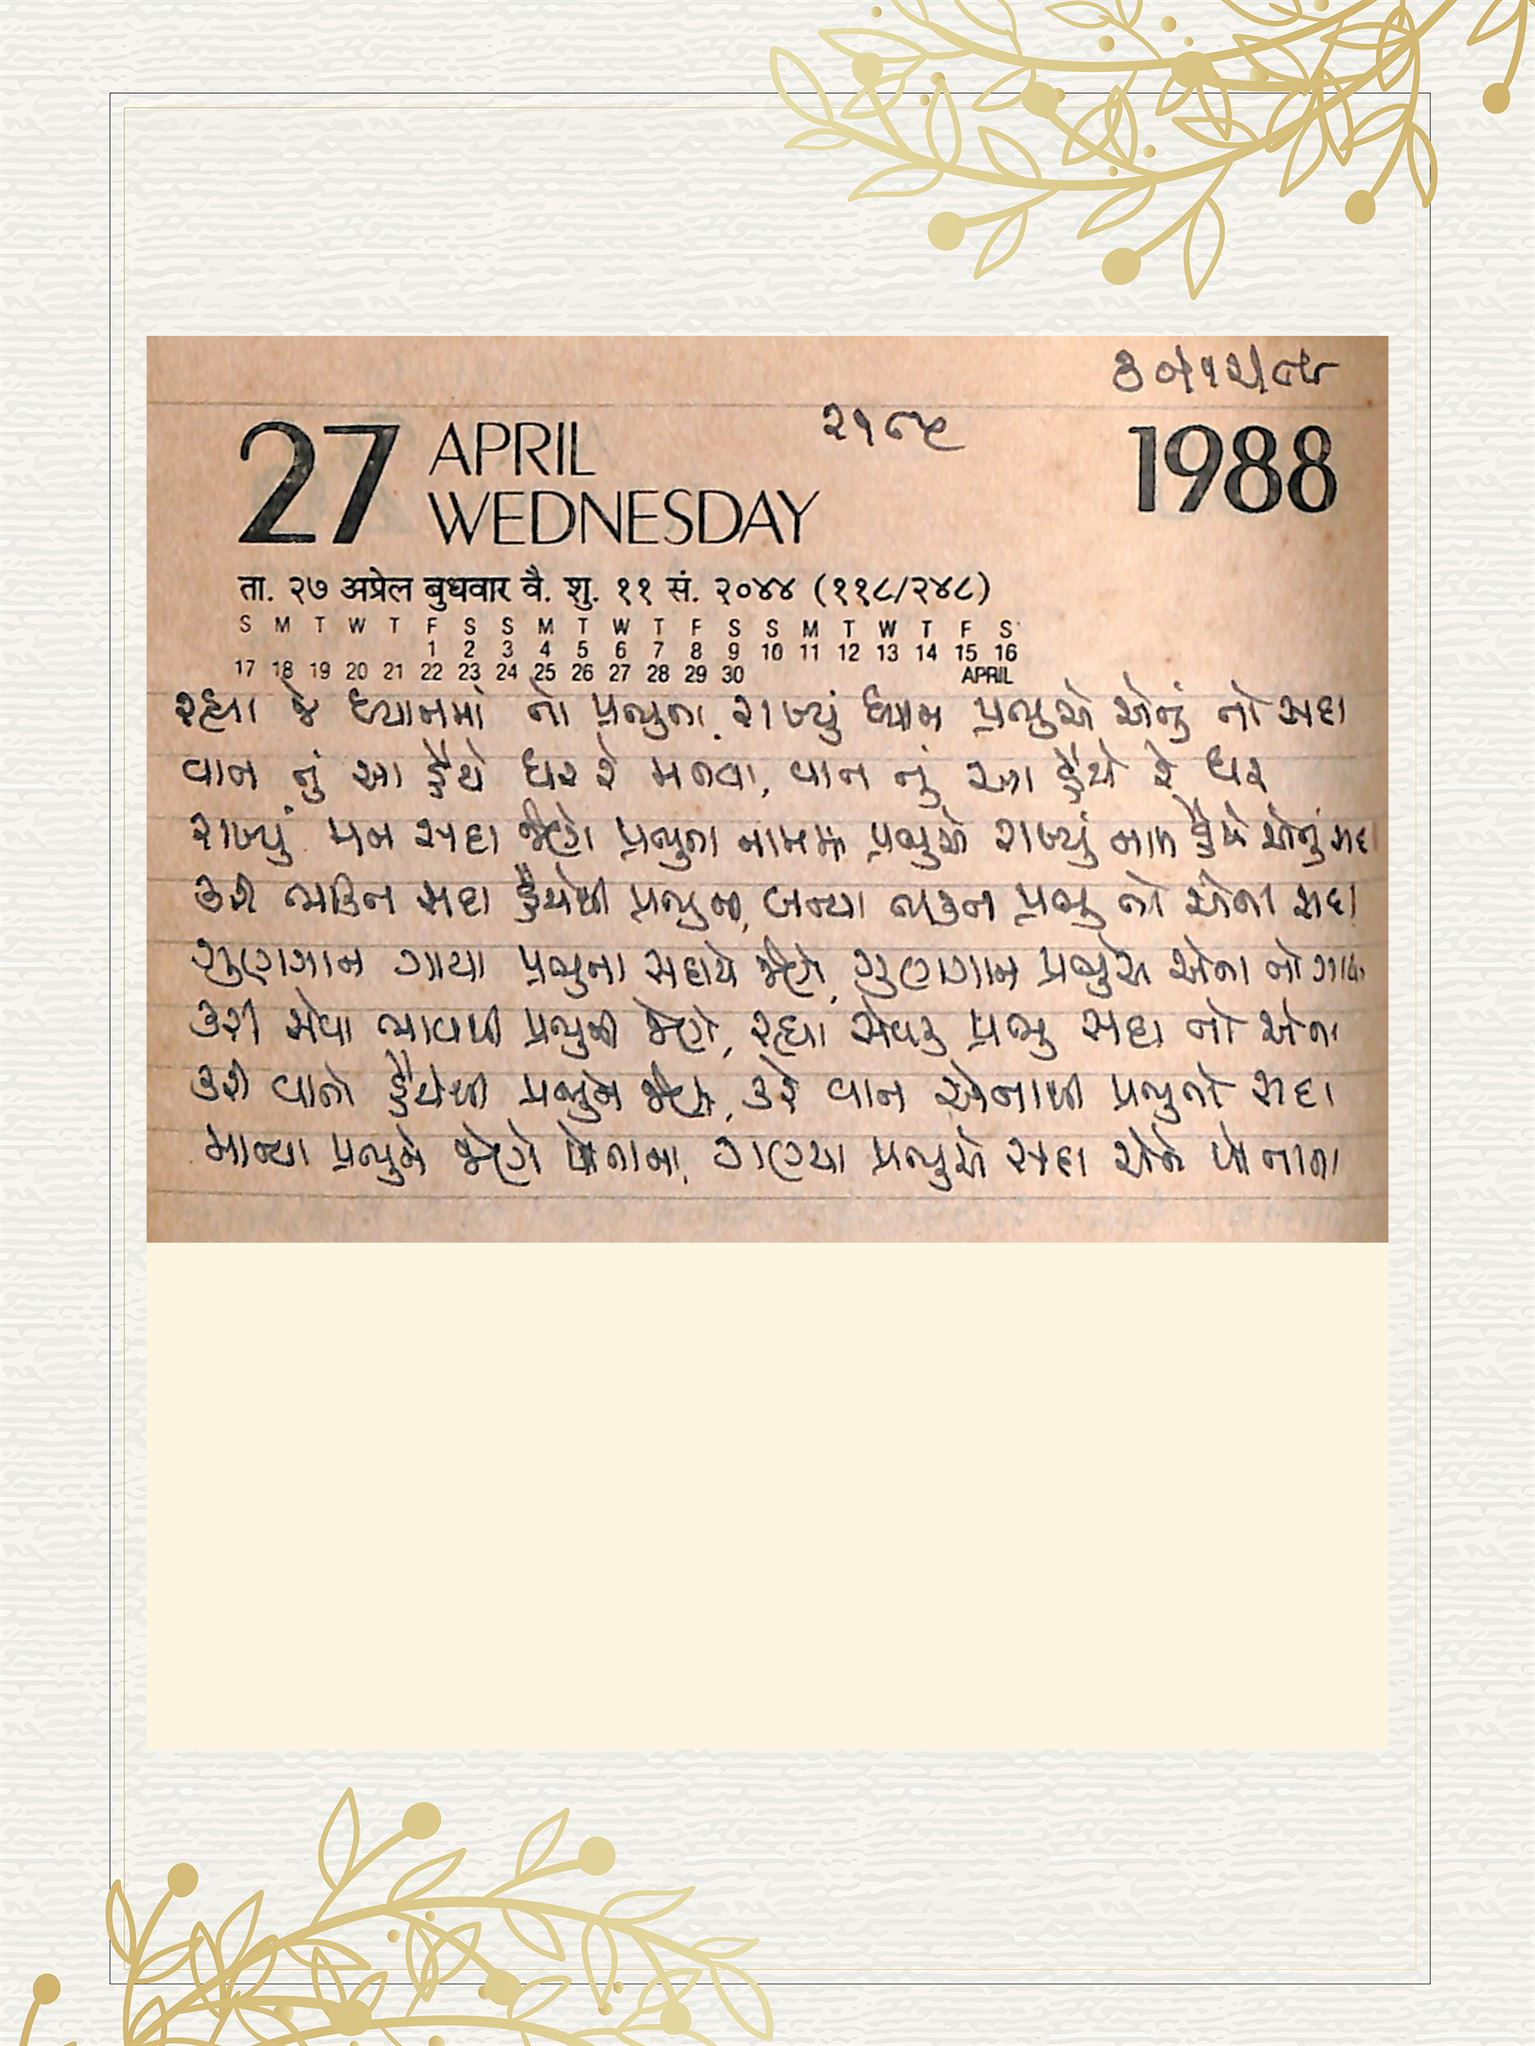 ૩૦/૧૨/૮૯
૨૧૮૯
27 APRIL WEDNESDAY 1988
ता. २७ अप्रेल बुधवार वै. शु. ११ सं. २०४४ (११८/२४८)
S M T W T F S S M T W T F S S M T W T F S
1 2 3 4 5 6 7 8 9 10 11 12 13 14 15 16
17 18 19 20 21 22 23 24 25 26 27 28 29 30 APRIL
રહ્યા જે ધ્યાનમાં તો પ્રભુના, રાખ્યું ધ્યાન પ્રભુએ એનું તો સદા
વાત નું આ હૈયે ધર રે મનવા, વાત નું આ હૈયે રે ધર
રાખ્યું મન સદા જેણે પ્રભુના નામમાં પ્રભુએ રાખ્યું નામ હૈયે એનું સદા
કરી ભક્તિ સદા હૈયેથી પ્રભુની, બન્યા ભક્ત પ્રભુ તો એના સદા
ગુણગાન ગાયા પ્રભુના સદાયે જેણે, ગુણગાન પ્રભુએ એના તો ગાયા
કરી સેવા ભાવથી પ્રભુની જેણે, રહ્યા સેવક પ્રભુ સદા તો એના
કરી વાતો હૈયેથી પ્રભુને જેણે, કરે વાત એનાથી પ્રભુતો સદા
માન્યા પ્રભુને જેણે પોતાના, ગણ્યા પ્રભુએ સદા એને પોતાના